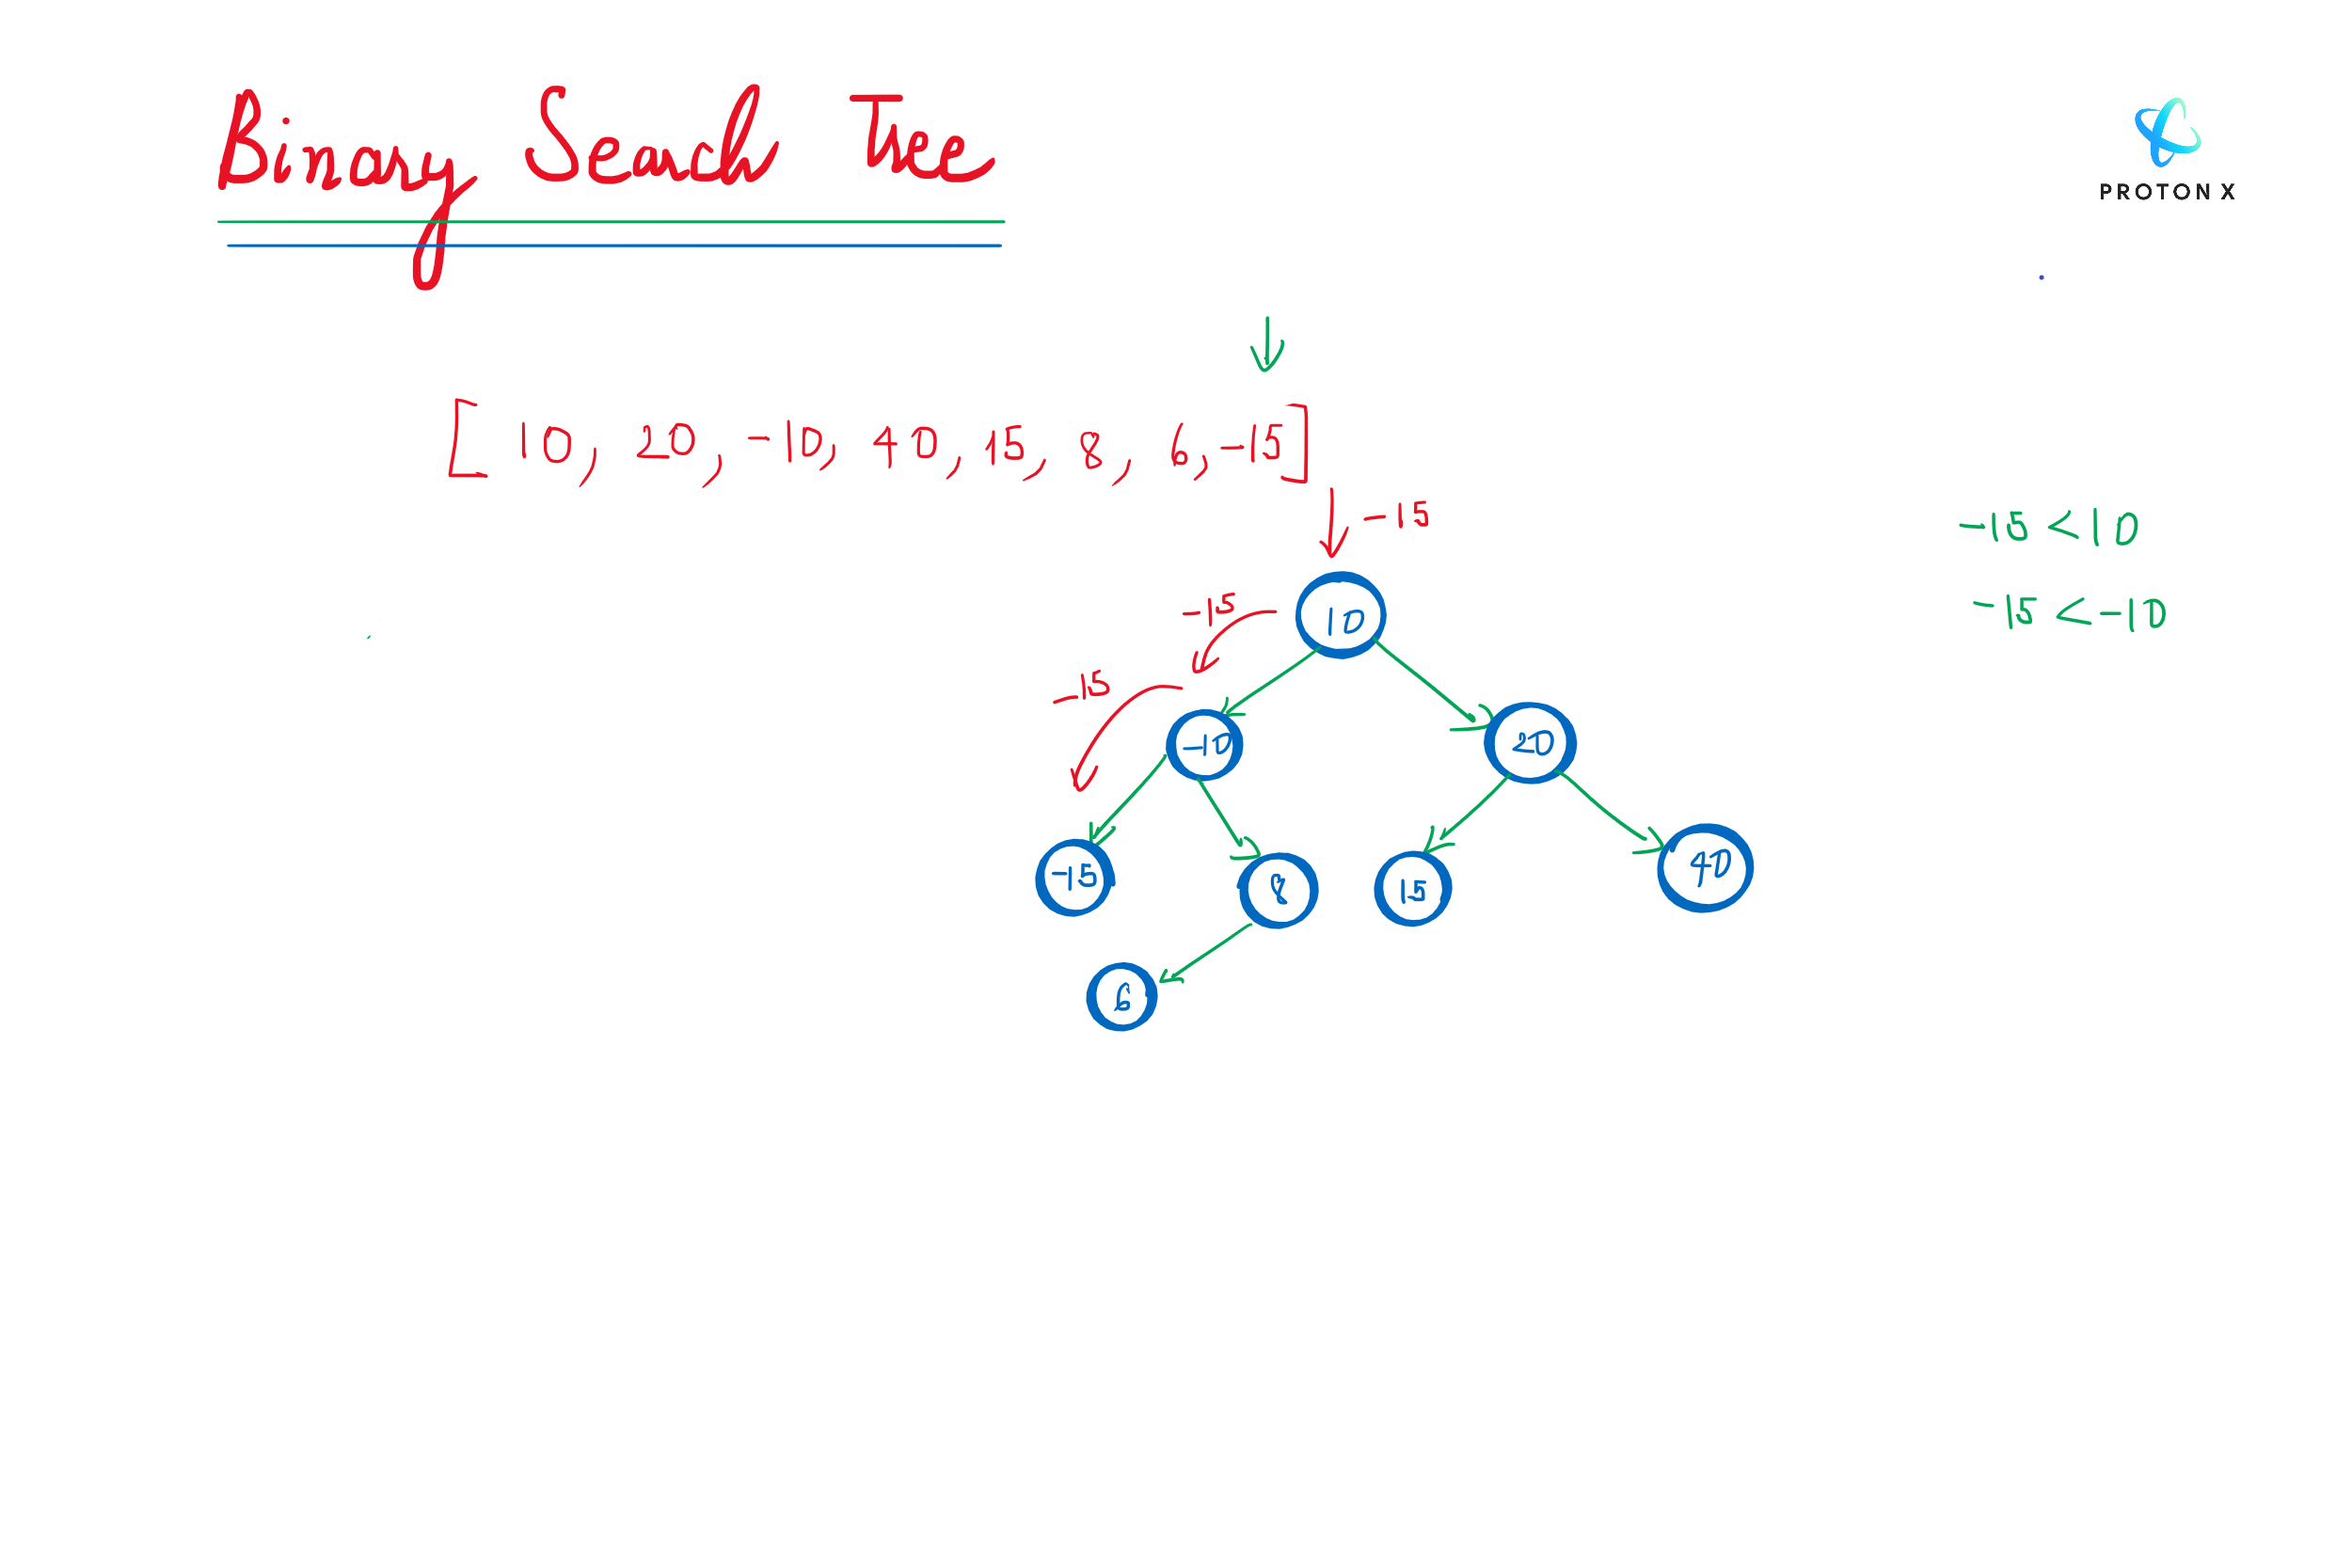 Binary Search Tree
PROTON X
[ 10, 20, -10, 40, 15, 8, 6, -15]
-15
-15 < 10
-15
10
-15 < -10
-15
-10
20
-15
8
15
40
6